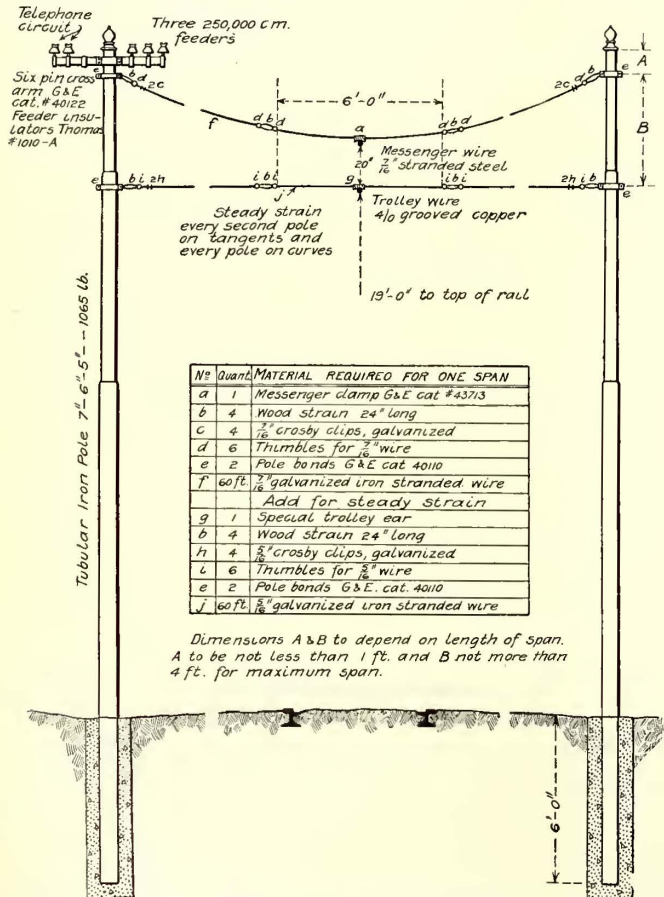 Telephone
circuit
Three 250,000 c m.
feeders
Six pin cross
arm G&E
cat. #40122
Feeder insu-
lators Thomas
#1010-A
e
b
d
2c
f
d b d
6'-0"
a
d b d
2c
d
b
e
A
B
20"
Messenger wire
7/16" stranded steel
e
b i
2h
i b i
j
g
i b i
2h
i b
e
Steady strain
every second pole
on tangents and
every pole on curves
Trolley wire
4/0 grooved copper
19'-0" to top of rail
Tubular Iron Pole 7"-6"-5"--1065 lb.
Nº Quant. MATERIAL REQUIRED FOR ONE SPAN
a 1 Messenger clamp G&E cat #43713
b 4 Wood strain 24" long
c 4 7/16" crosby clips, galvanized
d 6 Thimbles for 7/16" wire
e 2 Pole bonds G&E cat 40110
f 60 ft. 7/16" galvanized iron stranded wire
Add for steady strain
g 1 Special trolley ear
b 4 Wood strain 24" long
h 4 5/16" crosby clips, galvanized
i 6 Thimbles for 5/16" wire
e 2 Pole bonds G&E. cat. 40110
j 60 ft. 5/16" galvanized iron stranded wire
Dimensions A & B to depend on length of span.
A to be not less than 1 ft. and B not more than
4 ft. for maximum span.
6'-0"